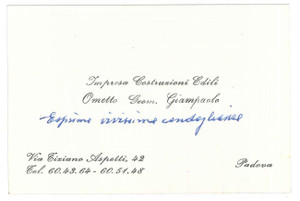 Impresa Costruzioni Edili
Ometto Geom. Giampaolo
Esprime vivissime condoglianze
Via Tiziano Aspetti, 42
Padova
Tel. 60.43.64 - 60.51.48